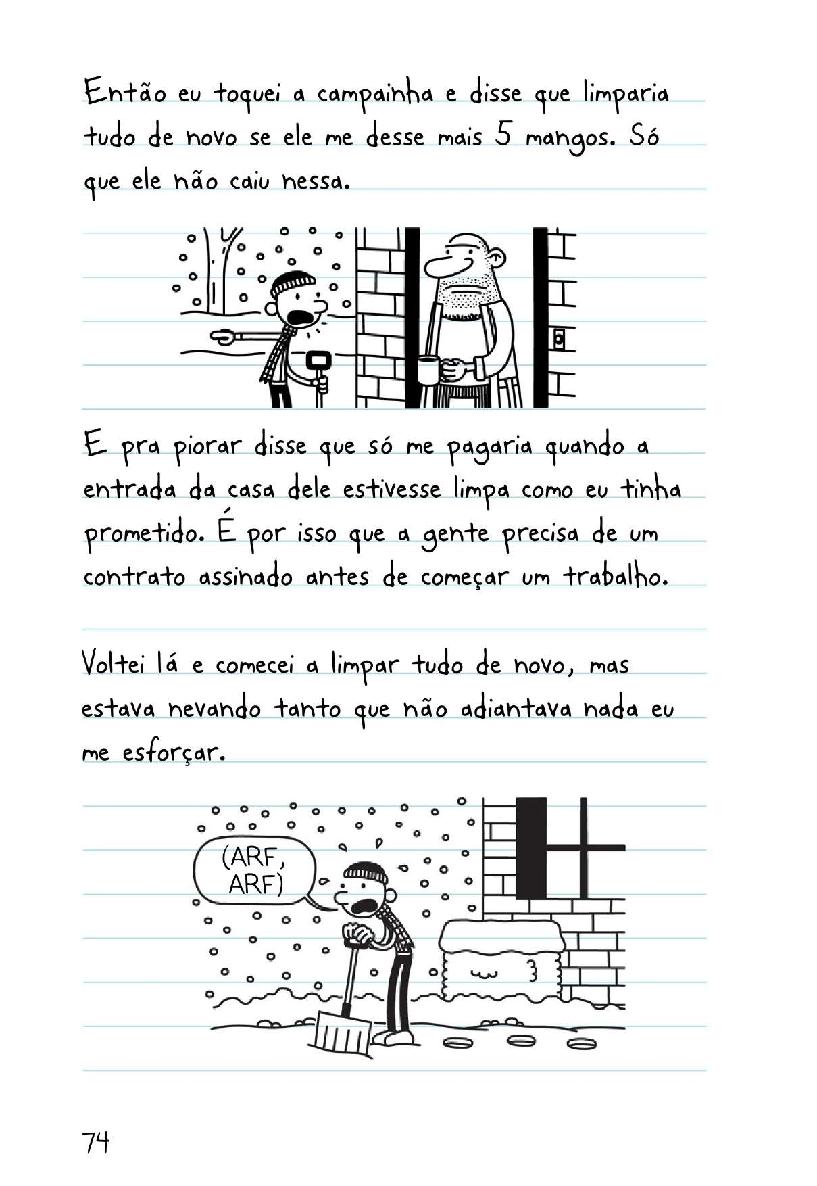 Então eu toquei a campainha e disse que limparia
tudo de novo se ele me desse mais 5 mangos. Só
que ele não caiu nessa.
E pra piorar disse que só me pagaria quando a
entrada da casa dele estivesse limpa como eu tinha
prometido. É por isso que a gente precisa de um
contrato assinado antes de começar um trabalho.
Voltei lá e comecei a limpar tudo de novo, mas
estava nevando tanto que não adiantava nada eu
me esforçar.
(ARF,
ARF)
74